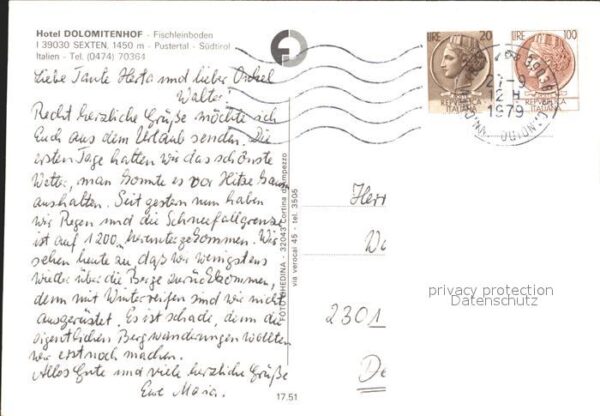 Hotel DOLOMITENHOF - Fischleinboden
I 39030 SEXTEN, 1450 m - Pustertal - Südtirol
Italien - Tel. (0474) 70364
Liebe Tante Herta und lieber Onkel
Walter!
Recht herzliche Grüße möchte ich
Euch aus dem Urlaub senden. Die
ersten Tage hatten wir das schönste
Wetter, man konnte es vor Hitze kaum
aushalten. Seit gestern nun haben
wir Regen und die Schneefallgrenze
ist auf 1200 m heruntergekommen. Wir
sehen heute zu daß wir wenigstens
wieder über die Berge zurückkommen,
denn mit Winterreifen sind wir nicht
ausgerüstet. Es ist schade, denn die
eigentlichen Bergwanderungen wollten
wir erst noch machen.
Alles Gute und viele herzliche Grüße
Eure Maria.
FOTO GHEDINA - 32043 Cortina d'Ampezzo
via verocai 45 - tel. 3505
17.51
LIRE 20
REPUBBLICA
ITALIANA
LIRE 100
REPUBBLICA
ITALIANA
27-9
12 H
1979
Herr
2301
privacy protection
Datenschutz